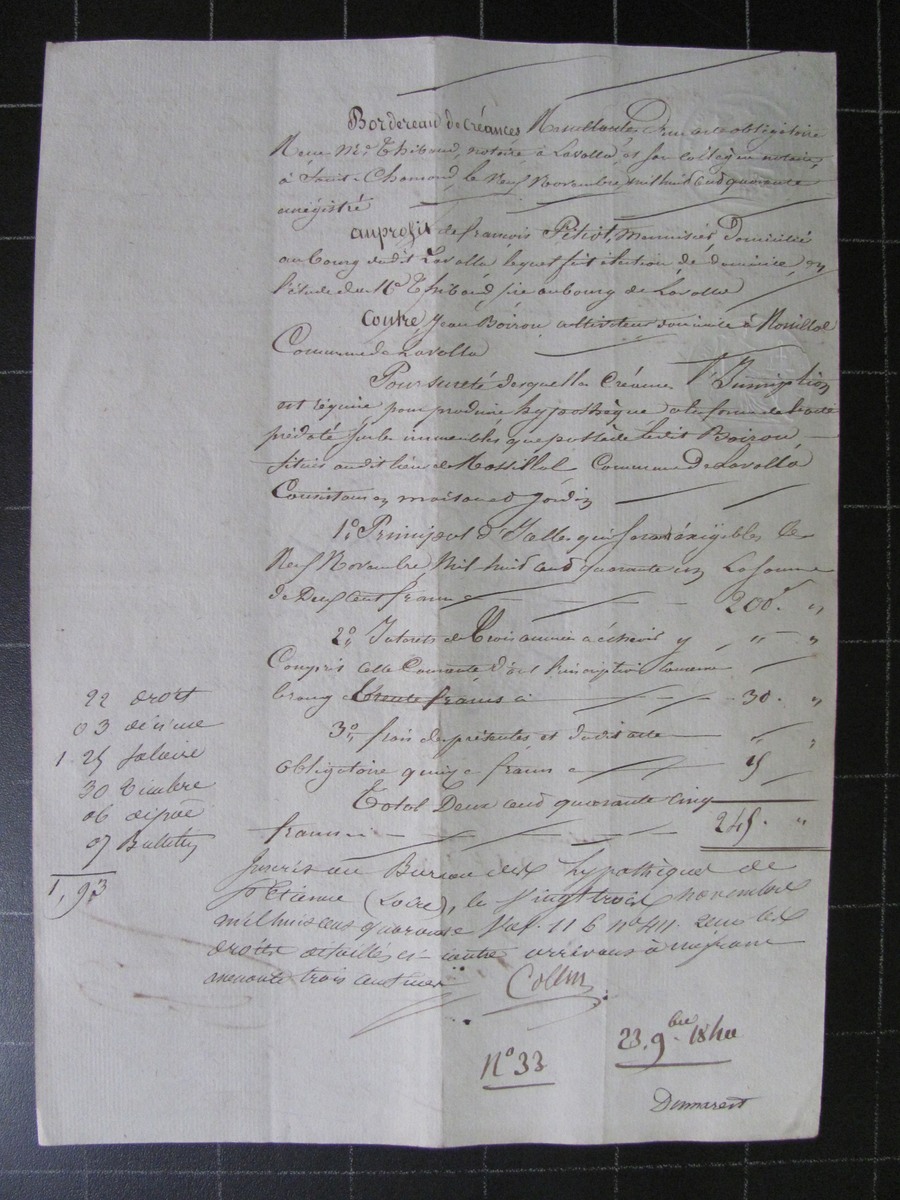 Bordereau de Créances Résultantes d'un acte obligatoire
Reçu Me Thibaud, notaire à Lavalla, et son collègue notaire,
à Saint-Chamond, le Neuf Novembre mil huit cent quarante
enregistré
au profit de françois Petiot, Menuisier Domicilié
au bourg dudit Lavalla lequel fait élection de domicile, en
l'étude du Me Thibaud sise au bourg de Lavalla
Contre Jean Boiron cultivateur domicilié à
Commune de Lavalla
Pour sureté desquelles Créances l'Inscription
est réquise pour produire hypothèque à la forme de l'acte
prédaté sur les immeubles que possède ledit Boiron,
situés audit lieu de Commune De Lavalla
Consistant en maison et jardin
1º Principal d'Icelles qui sera éxigibles le
Neuf Novembre Mil huit cent quarante un La somme
de Deux cent francs 200f "
2º Intérets de Trois années à échoir y " "
Compris celle Courante d'où l'inscription conserve
le rang Trente francs ci 30. "
3º frais des présentes et dudit acte " "
obligatoire quinze francs 15
Total Deux cent quarante cinq
francs 245. "
22 droit
03 décime
1. 25 Salaire
30 Timbre
06 dépot
07 Bulletin
1,93
Inscris au Bureau des hypothèques de
St Etienne (Loire), le Vingt trois novembre
mil huit cens quarante Vol. 116 nº
droits détaillés ci-contre arrivans à un franc
nonante trois centimes
Nº 33
23. 9bre 1840